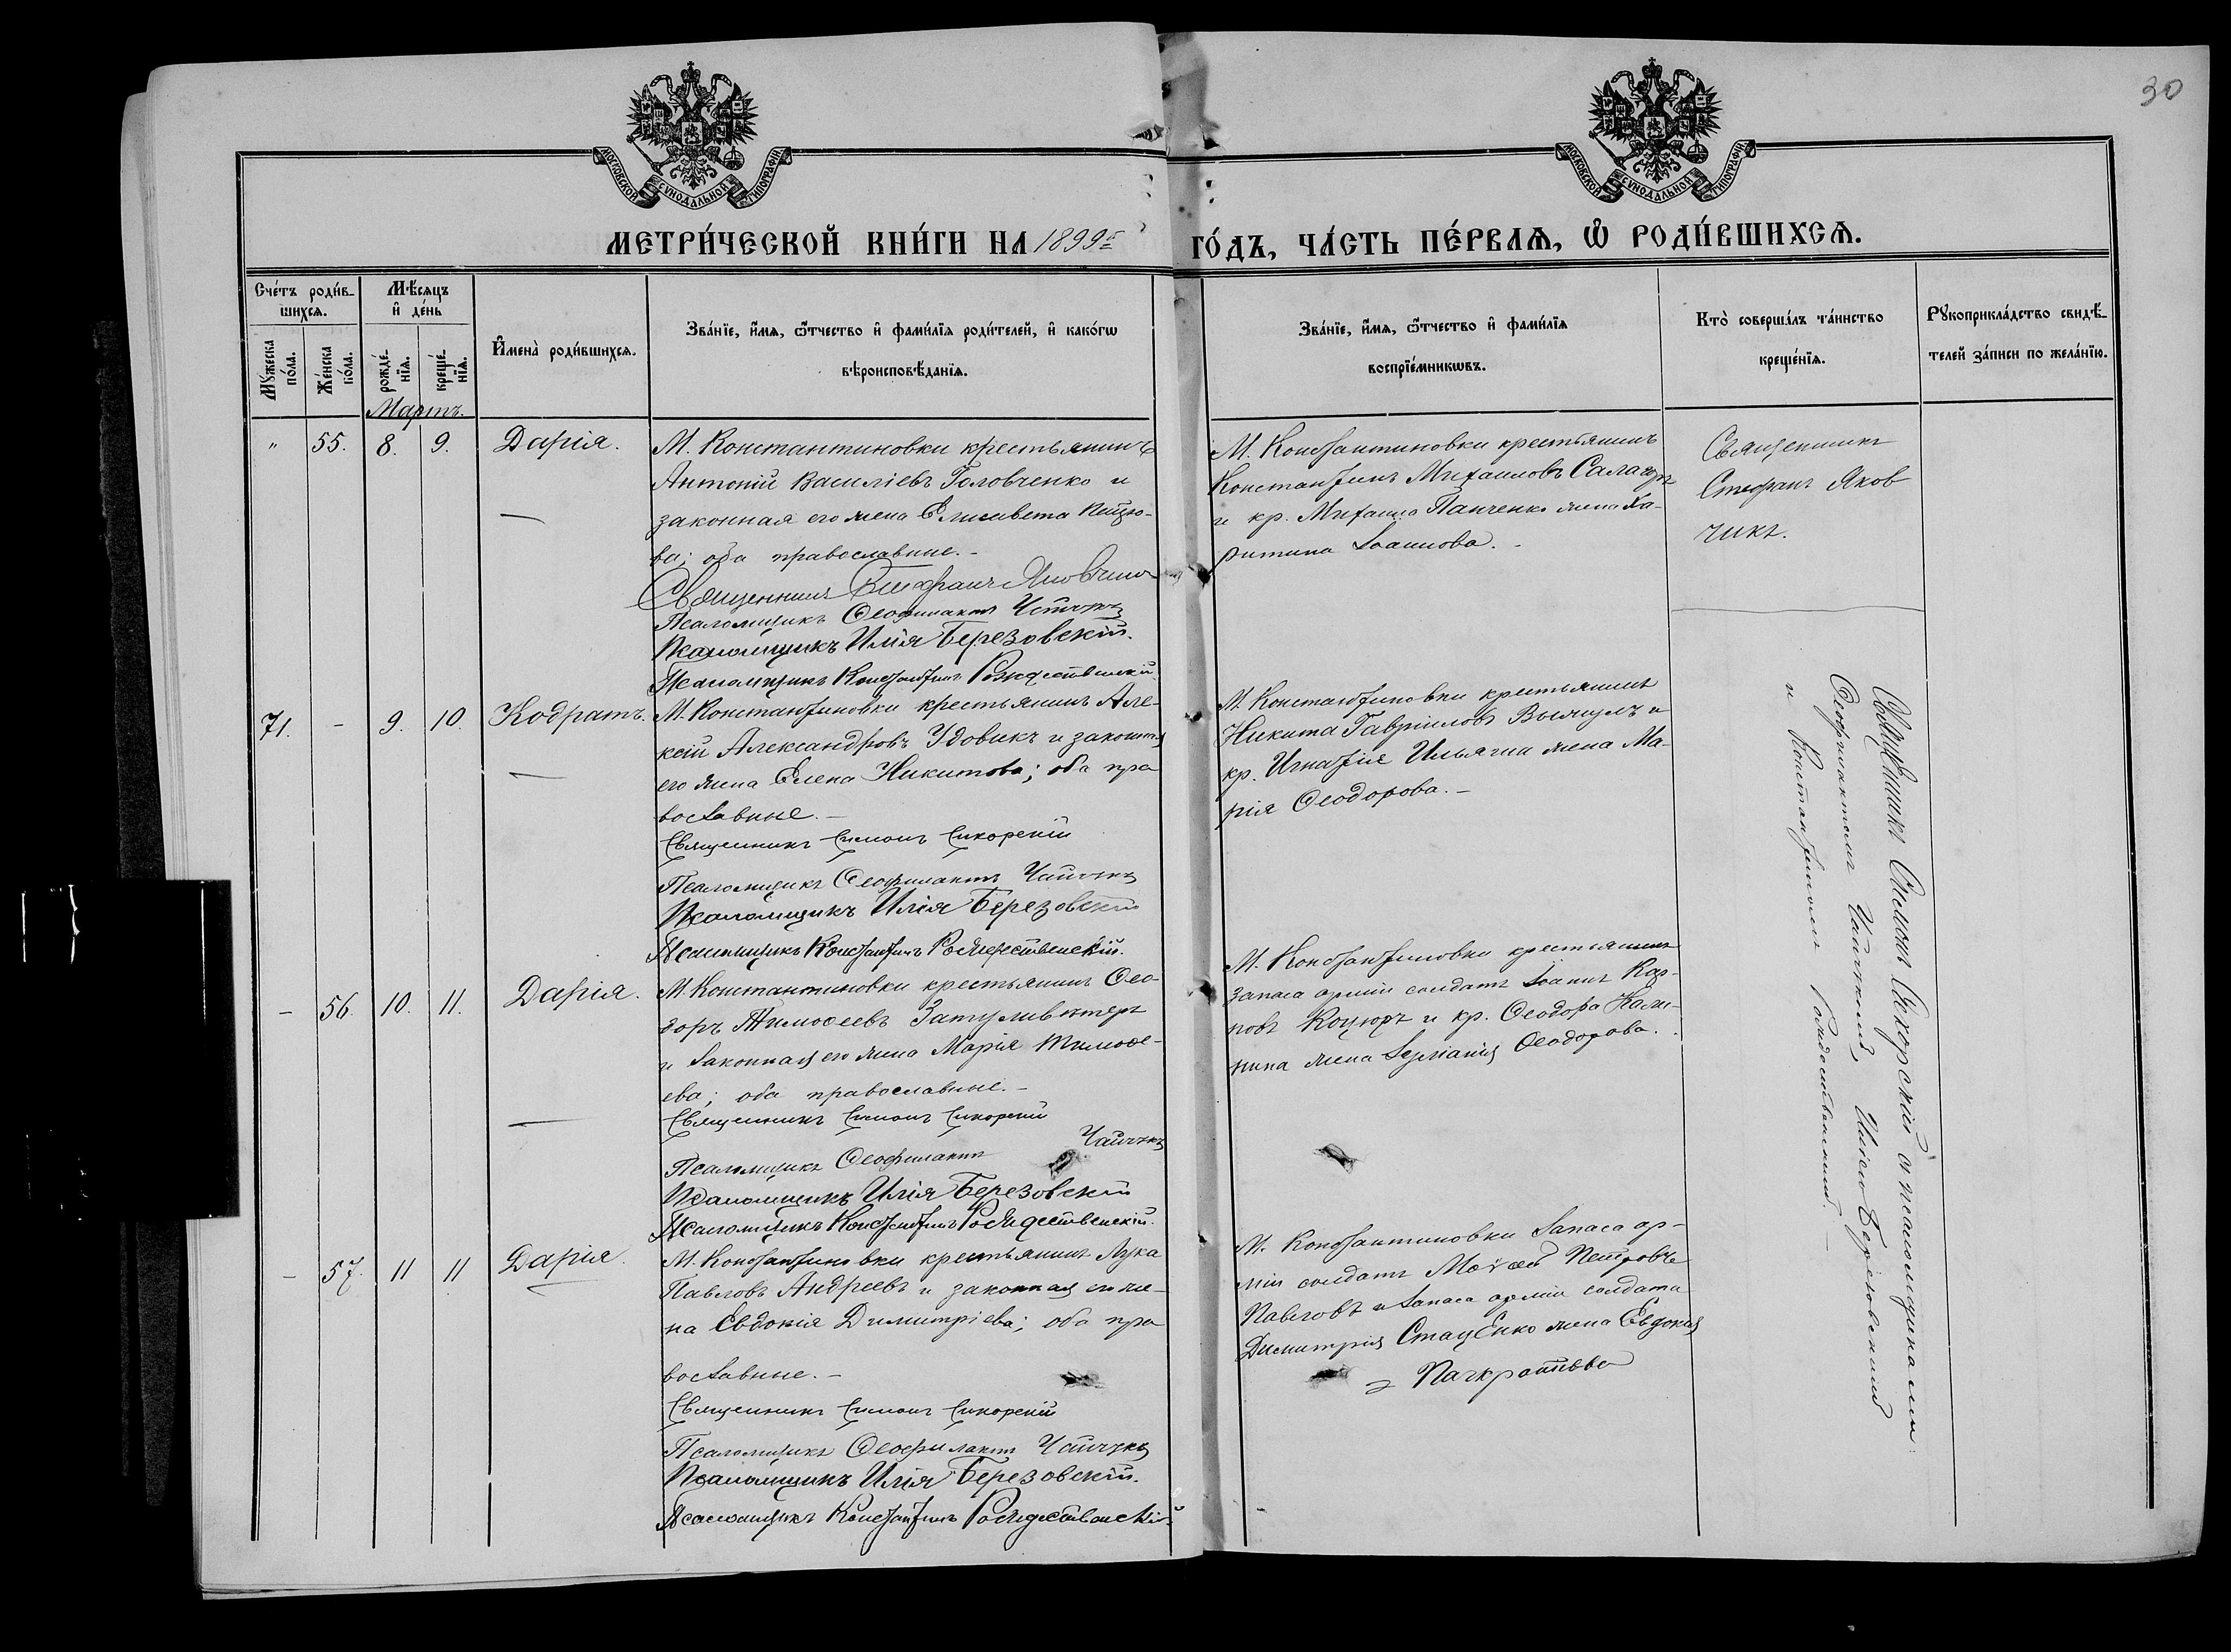 30
МОСКОВСКОЙ СѴНОДАЛЬНОЙ ТИПОГРАФІИ
МОСКОВСКОЙ СѴНОДАЛЬНОЙ ТИПОГРАФІИ
МЕТРИ́ЧЕСКОЙ КНИ́ГИ НА 1899 г. ГО́ДЪ, ЧА́СТЬ ПЕ́РВАѦ, Ѡ҆ РОДИ́ВШИХСѦ.
Сче́тъ роди́в-
шихсѧ.
Мꙋ́жеска по́ла.
Же́нска по́ла.
Мѣ́сѧцъ
и҆ де́нь
рожде́-
нїѧ.
креще́-
нїѧ.
И҆мена̀ роди́вшихсѧ.
Зва́нїе, и҆́мѧ, ѻ҆́тчество и҆ фами́лїѧ роди́телей, и҆ како́гѡ
вѣроисповѣ́данїѧ.
Зва́нїе, и҆́мѧ, ѻ҆́тчество и҆ фами́лїѧ
воспрїе́мникѡвъ.
Кто̀ соверша́лъ та́инство
креще́нїѧ.
Рꙋкоприкла́дство свидѣ́-
телей за́писи по жела́нїю.
Мартъ.
" 55. 8. 9. Дарія.
М. Константиновки крестьянинъ
Антоній Василіевъ Головченко и
законная его жена Елисавета
ва; оба православные.-
Священникъ Стефанъ Яковчикъ
Псаломщикъ Ѳеофилактъ
Псаломщикъ Илія Березовскій.
Псаломщикъ Константинъ Рождественскій.
М. Константиновки крестьянинъ
Константинъ Михаиловъ
и кр. Михаила Панченко жена Ха-
ритина Іоаннова.-
Священникъ
Стефанъ Яков
чикъ.
71. - 9. 10. Кодратъ.
М. Константиновки крестьянинъ Але-
ксій Александровъ Удовикъ и законная
его жена Елена Никитова; оба пра
вославные.-
Священникъ Симонъ Сикорскій
Псаломщикъ Ѳеофилактъ Чайчукъ
Псаломщикъ Илія Березовскій
Псаломщикъ Константинъ Рождественскій.
М. Константиновки крестьянинъ
Никита Гавріиловъ и
кр. Игнатія жена Ма-
рія Ѳеодорова.-
Священникъ Симонъ Сикорскій съ псаломщиками:
Ѳеофилактомъ Чайчукомъ, Иліею Березовскимъ
и Константиномъ Рождественскимъ.-
- 56. 10. 11. Дарія.
М. Константиновки крестьянинъ Ѳео-
доръ Тимоѳеевъ
и законная его жена Марія Тимоѳе-
ева; оба православные.-
Священникъ Симонъ Сикорскій
Псаломщикъ Ѳеофилактъ Чайчукъ
Псаломщикъ Илія Березовскій
Псаломщикъ Константинъ Рождественскій.
М. Константиновки крестьянинъ
запаса арміи солдатъ Іоаннъ Кар-
повъ Коцюръ и кр. Ѳеодора Кали-
нина жена Ѳеодорова.
- 57. 11 11 Дарія.
М. Константиновки крестьянинъ Лука
Павловъ Андреевъ и законная его же-
на Евдокія Димитріева; оба пра
вославные.-
Священникъ Симонъ Сикорскій
Псаломщикъ Ѳеофилактъ Чайчукъ
Псаломщикъ Илія Березовскій.
Псаломщикъ Константинъ Рождественскій
М. Константиновки запаса ар-
міи солдатъ Моѵсей Петровъ
Павловъ и запаса арміи солдата
Димитрія Стаценко жена Евдокія
Панкратіева